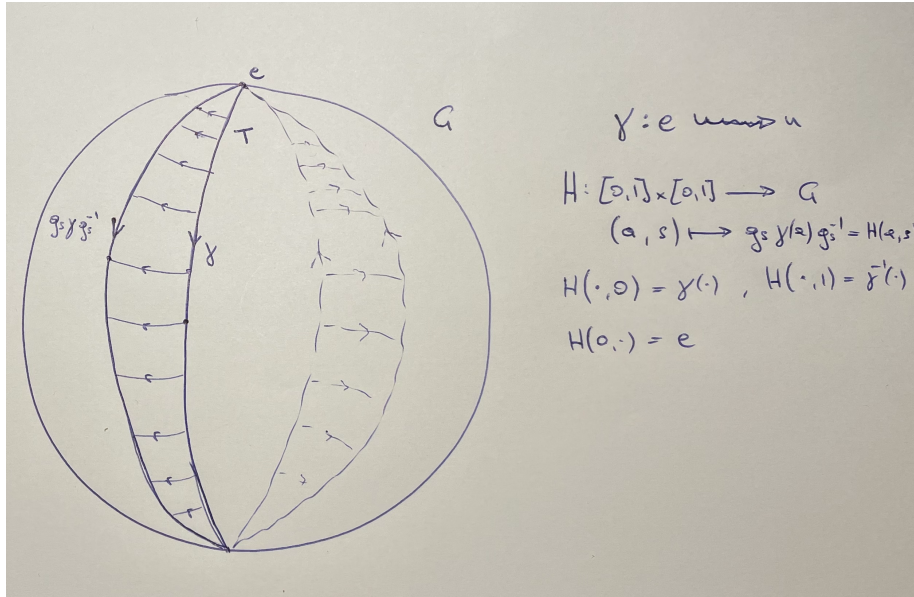 e
G
T
g_s γ g_s^{-1}
γ
γ : e ⇝ n
H : [0,1] × [0,1] ⟶ G
(a, s) ⟼ g_s γ(a) g_s^{-1} = H(a, s
H(·, 0) = γ(·) , H(·, 1) = γ^{-1}(·)
H(0, ·) = e